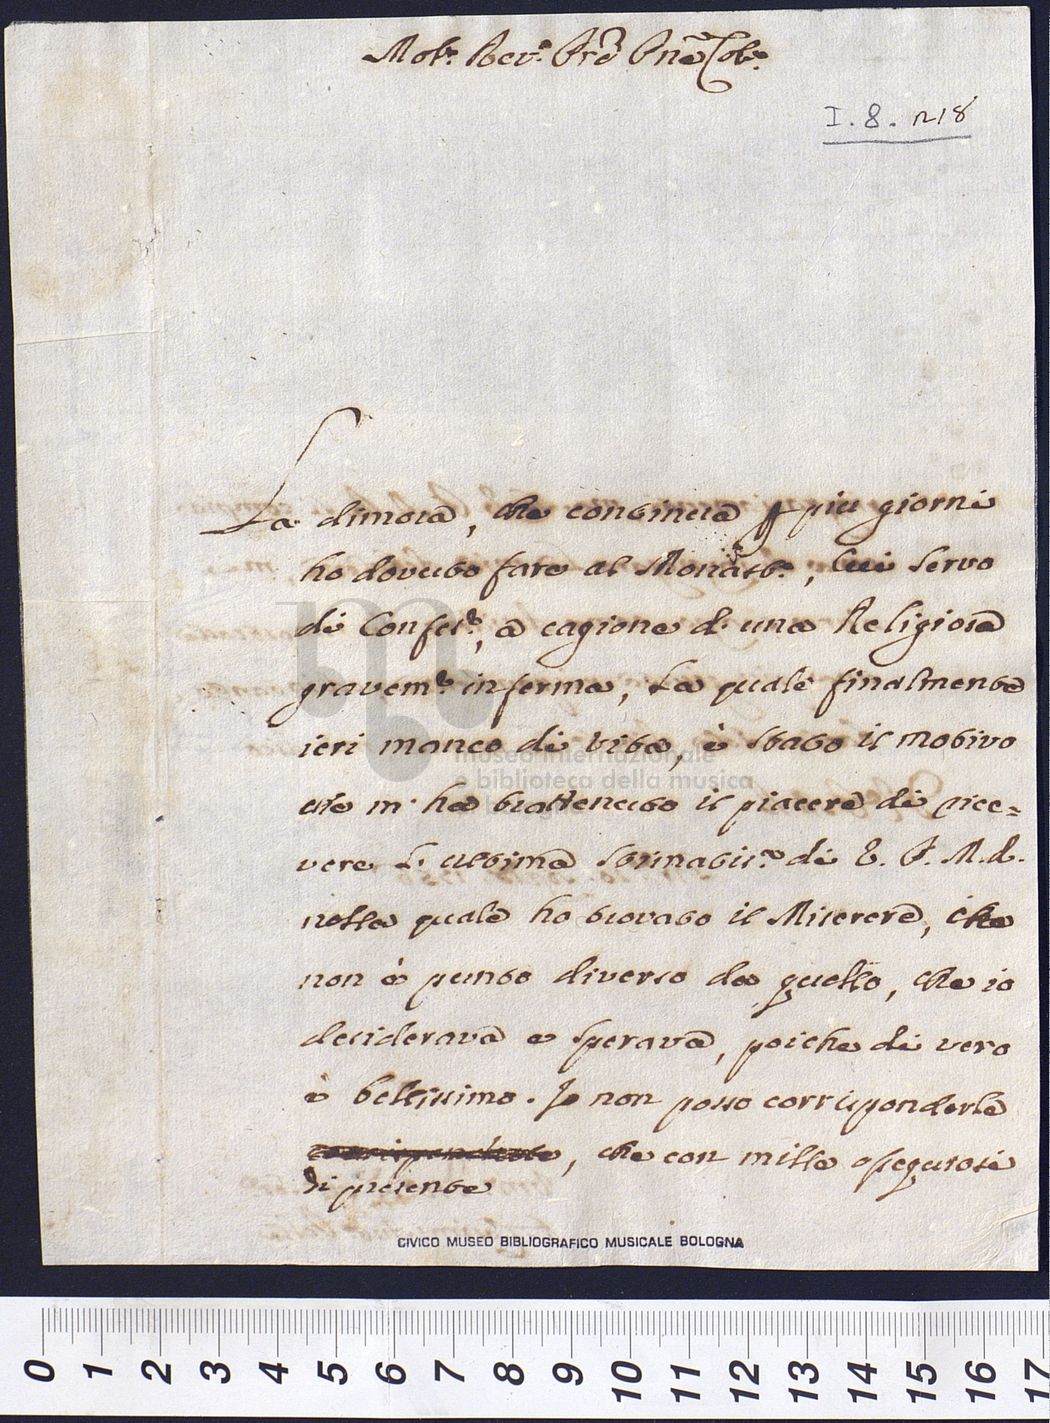 Molto Rev.do Prē Pnē Col.mo
I. 8. n 18
La dimora, che continua p piu giorni
ho dovuto fare al Monast.o, cui servo
di Conf.re, a cagione d'una Religiosa
gravem.te inferma, La quale finalmente
ieri manco di vita, è stato il motivo
che m'ha trattenuto il piacere di rice=
vere L'ultima stimatis.ma di V. P. M. R.
nella quale ho trovato il Miserere, che
non è punto diverso da quello, che io
desiderava e sperava, poiche di vero
è bellissimo. Io non posso corrisponderle
corrisponderle, che con mille ossequiosi
di presente
museo internazionale
e biblioteca della musica
CIVICO MUSEO BIBLIOGRAFICO MUSICALE BOLOGNA
0 1 2 3 4 5 6 7 8 9 10 11 12 13 14 15 16 17